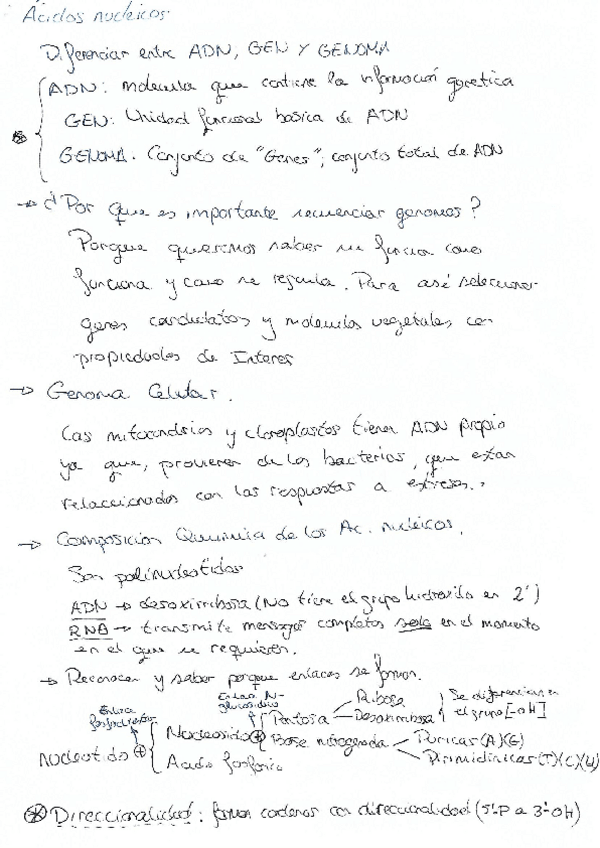 Ácidos nucleicos
Diferenciar entre ADN, GEN Y GENOMA
ADN: molecula que contiene la información genetica
GEN: Unidad funcional basica de ADN
GENOMA. Conjunto de "Genes"; conjunto total de ADN
→ ¿Por que es importante secuenciar genomas?
Porque queremos saber su funcion como
funciona y como se regula. Para asé seleccionar
genes candidatos y moleculas vegetales con
propiedades de Interes
→ Genoma Celular.
Las mitocondrias y cloroplastos tienen ADN propio
ya que, provienen de las bacterias, que estan
relaccionados con las respuestas a estreses.
→ Composicion Quimica de los Ac. nucleicos.
Son polinucleotidos
ADN → desoxirribosa (No tiene el grupo hidroxilo en 2')
RNA → transmite mensajes completos solo en el momento
en el que se requieren.
→ Reconocer y saber porque enlaces se forman.
Enlace fosfodiester
Enlace N-glucosidico
Nucleotido ⊕
Nucleosido ⊕
Pentosa
Ribosa
Desoxirribosa
Se diferencian en
el grupo [-OH]
Base nitrogenada
Puricas (A)(G)
Pirimidinicas (T)(C)(U)
Acido fosforico
⊛ Direccionalidad: forman cadenas con direccionalidad (5'-P a 3'-OH)